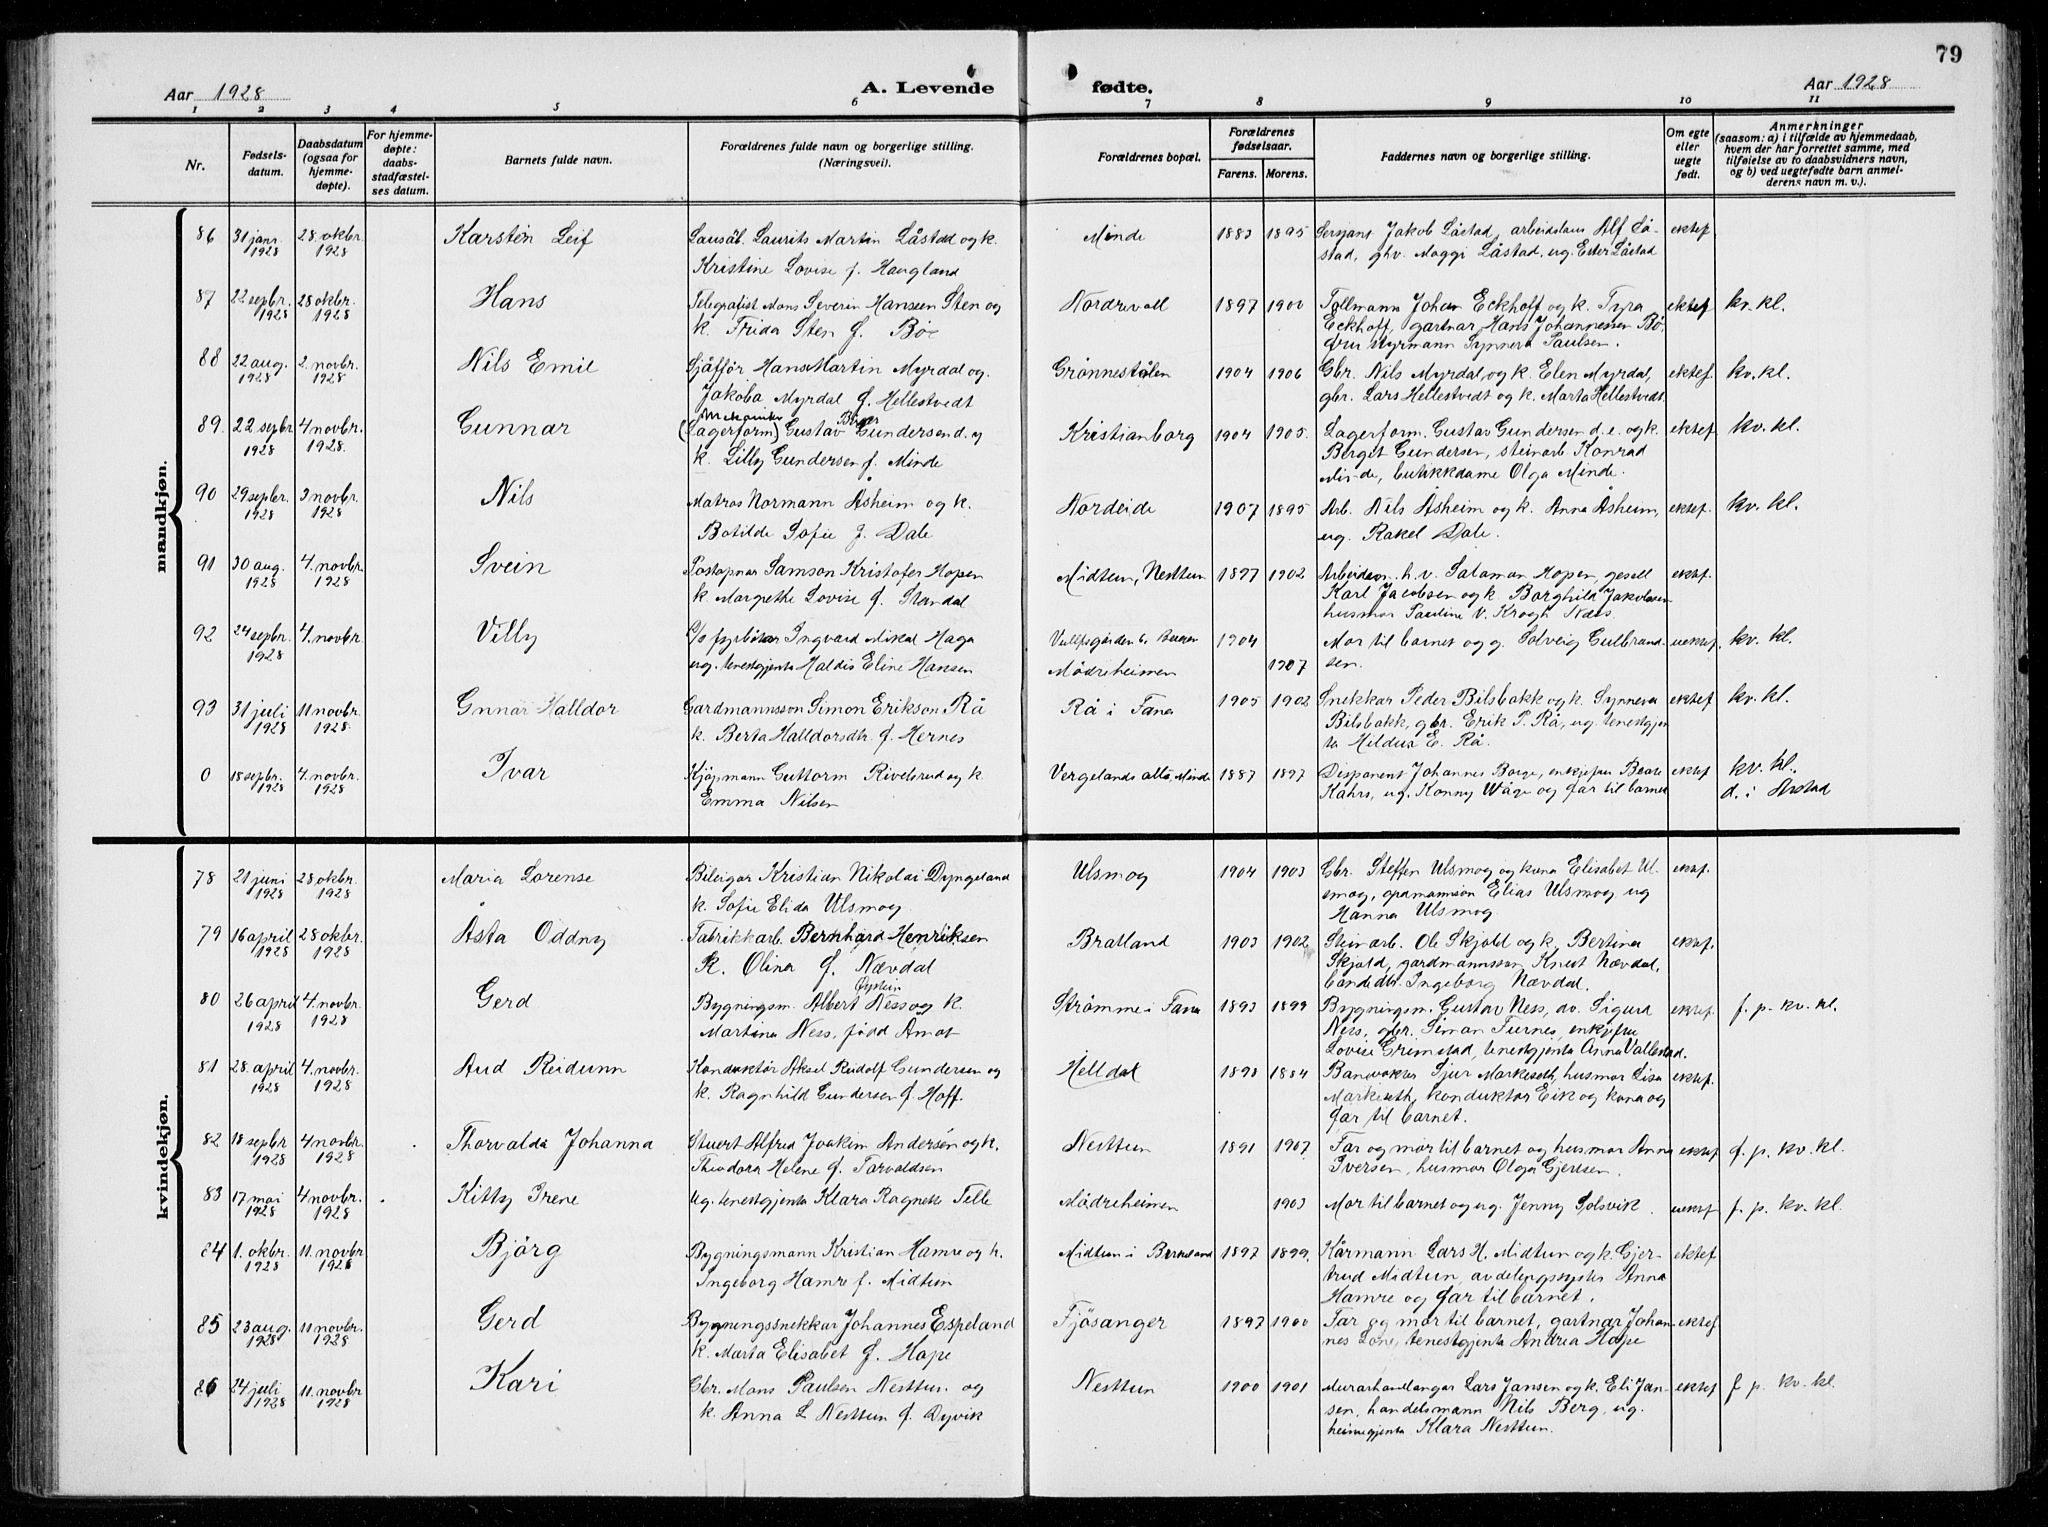 79
Aar 1928 A. Levende fødte. Aar 1928
1 2 3 4 5 6 7 8 9 10 11
Nr.
Fødsels-
datum.
Daabsdatum
(ogsaa for
hjemme-
døpte).
For hjemme-
døpte:
daabs-
stadfæstel-
ses datum.
Barnets fulde navn.
Forældrenes fulde navn og borgerlige stilling.
(Næringsvei).
Forældrenes bopæl.
Forældrenes
fødselsaar.
Farens. Morens.
Faddernes navn og borgerlige stilling.
Om egte
eller
uegte
født.
Anmerkninger
(saasom: a) i tilfælde av hjemmedaab,
hvem der har forrettet samme, med
tilføielse av to daabsvidners navn,
og b) ved uegtefødte barn anmel-
derens navn m. v.).
mandkjøn.
86 31 janr. 1928 28. oktbr. 1928 Karsten Leif
Lausarb. Laurits Martin Låstad og k.
Kristine Lovise f. Haugland
Minde 1883 1895
Sersjant Jakob Låstad, arbeidslaus Alf Lå-
stad, ghv. Maggi Låstad, ug. Ester Låstad
ektef.
87 22 sepbr. 1928 28 oktbr. 1928 Hans
Telegrafist Mons Severin Hansen Sten og
k. Frida Sten f. Bøe
Nordrevoll 1897 1900
Tollmann Johan Eckhoff og k. Tyra
Eckhoff, gartnar Hans Johannessen Bø,
fru Myrmann Synneva Paulsen.
ektef kv. kl.
88 22 aug. 1928 2. novbr. 1928 Nils Emil
Sjåfför Hans Martin Myrdal og.
Jakoba Myrdal f. Hellestvedt
Grønnestølen 1904 1906
Gbr. Nils Myrdal, og k. Elen Myrdal,
gbr. Lars Hellestvedt og k. Marta Hellestvedt
ektef. kv. kl.
89. 22 sepbr 1928 4 novbr. 1928. Gunnar
Mekaniker Birger
(Lagerform) Gustav Gundersen d. y
k. Lilly Gundersen f. Minde
Kristianborg 1904 1905.
Lagerform. Gustav Gundersen d. e. og k.
Berget Gundersen, steinarb Konrad
Minde, butikkdame Olga Minde.
ektef kv. kl.
90 29 sepbr. 1928 3 novbr. 1928 Nils
Matros Normann Åsheim og k.
Botilde Sofie f. Dale
Nordeide 1907 1895
Arb. Nils Åsheim og k. Anna Åsheim,
ug. Rakel Dale.
ektef. kv. kl.
91 30 aug. 1928 4. novbr. 1928 Svein
Postopnar Samson Kristofer Hopen
k. Margrethe Lovise f. Standal
Midtun, Nesttun 1897 1902
Arbeidsm. h. v. Salamon Hopen, gesell
Karl Jacobsen og k. Borghild Jakobsen
husmor Pauline v. Krogh Næss
ektef.
92 24 sepbr. 1928 4. novbr. Villy
Fyrbøtar Ingvard Mikal Haga
ug. tenestgjenta Haldis Eline Hansen
Mødreheimen 1904 1907
Mor til barnet og g. Solveig Gulbrand-
sen.
uektef. kv. kl.
93 31 juli 1928 11 novbr. 1928. Gunnar Halldor
Gardmannsson Simon Erikson Rå
k. Berta Halldorsdtr. f. Hernes
Rå i Fana 1905 1902
Snekkar Peder Bilsbakk og k. Synneva
Bilsbakk, gbr. Erik P. Rå, ug. tenestgjen
ta Hildur E. Rå.
ektef kv. kl.
0 18 sepbr. 1928 4. novbr. 1928 Ivar
Kjøpmann Guttorm Rivelsrud og k
Emma Nilsen
Vergelands allé, Minde 1887 1897
Disponent Johannes Borge, enkjefru Beate
Kahrs, ug. Konny Wåge og far til barnet
ektef kv. kl.
d. i Årstad
kvindekjøn.
78 21 juni 1928 28 oktbr. 1928 Maria Lorense
Bileigar Kristian Nikolai Dyngeland
k. Sofie Elida Ulsmog
Ulsmog 1904 1903
Gbr. Steffen Ulsmog og kona Elisabet Ul-
smog, gardmannsson Elias Ulsmog ug
Hanna Ulsmog
ektef.
79 16 april 1928 28 oktbr. 1928 Åsta Oddny
Fabrikkarb. Bernhard Henriksen
k. Olina f. Nævdal
Bratland 1903 1902
Steinarb. Ole Skjold og k. Bertina
Skjold, gardmannsson Knut Nævdal,
bondedtr. Ingeborg Nævdal.
ektef.
80 26 april 1928 4. novbr. 1928 Gerd
Øystein
Bygningsm. Albert Ness og k.
Martina Ness, född Åmot
Strømme i Fana 1893 1899
Bygningsm. Gustav Ness, av. Sigurd
Ness, gbr. Simon Turnes, enkjefru
Lovise Grimstad, tenestgjenta Anna Vallestad.
ektef f. p. kv. kl.
81 28. april 1928 4. novbr. 1928 Aud Reidunn
Konduktör Aksel Rudolf Gundersen og
k. Ragnhild Gundersen f. Hoff.
Helldal 1890 1884
Banevokter Sjur Markeseth, husmor Lisa
Markeseth, konduktør Eik og kona og
far til barnet.
ektef.
82 18 sepbr 1928 4 novbr. 1928 Thorvalda Johanna
Stuert Alfred Joakim Andersen og k.
Theodora Helene f. Torvaldsen
Nesttun 1891 1907
Far og mor til barnet og husmor Anna
Iversen, husmor Olga Gjertsen.
ektef f. p. kv. kl.
83 17 mai 1928 4 novbr. 1928 Kitty Irene
Ug. tenestgjenta Klara Ragnette Telle
Mødreheimen 1903
Mor til barnet og ug. Jenny Solsvik.
uektef f. p. kv. kl.
84 1. okbr. 1928 11. novbr. 1928 Björg
Bygningsmann Kristian Hamre og k.
Ingeborg Hamre f. Midtun
Midtun i Birkeland 1897 1899.
Kårmann Lars H. Midtun og k. Gjer-
trud Midtun, avdelingssyster Anna
Hamre og far til barnet.
ektef
85 23 aug. 1928 11 novbr. 1928 Gerd
Bygningssnekkar Johannes Espeland
k. Marta Elisabet f. Hope
Fjøsanger 1897 1900
Far og mor til barnet, gartnar Johan-
nes Lone, tenestgjenta Andrea Hope
ektef
86 24 juli 1928 11. novbr 1928 Kari
Gbr. Mons Paulsen Nesttun og
k. Anna L Nesttun f. Dyvik
Nesttun 1900 1901
Murarhandlangar Lars Jansen og k. Eli Jan-
sen, handelsmann Nils Berg, ug.
heimegjenta Klara Nesttun.
ektef f p. kv. kl.